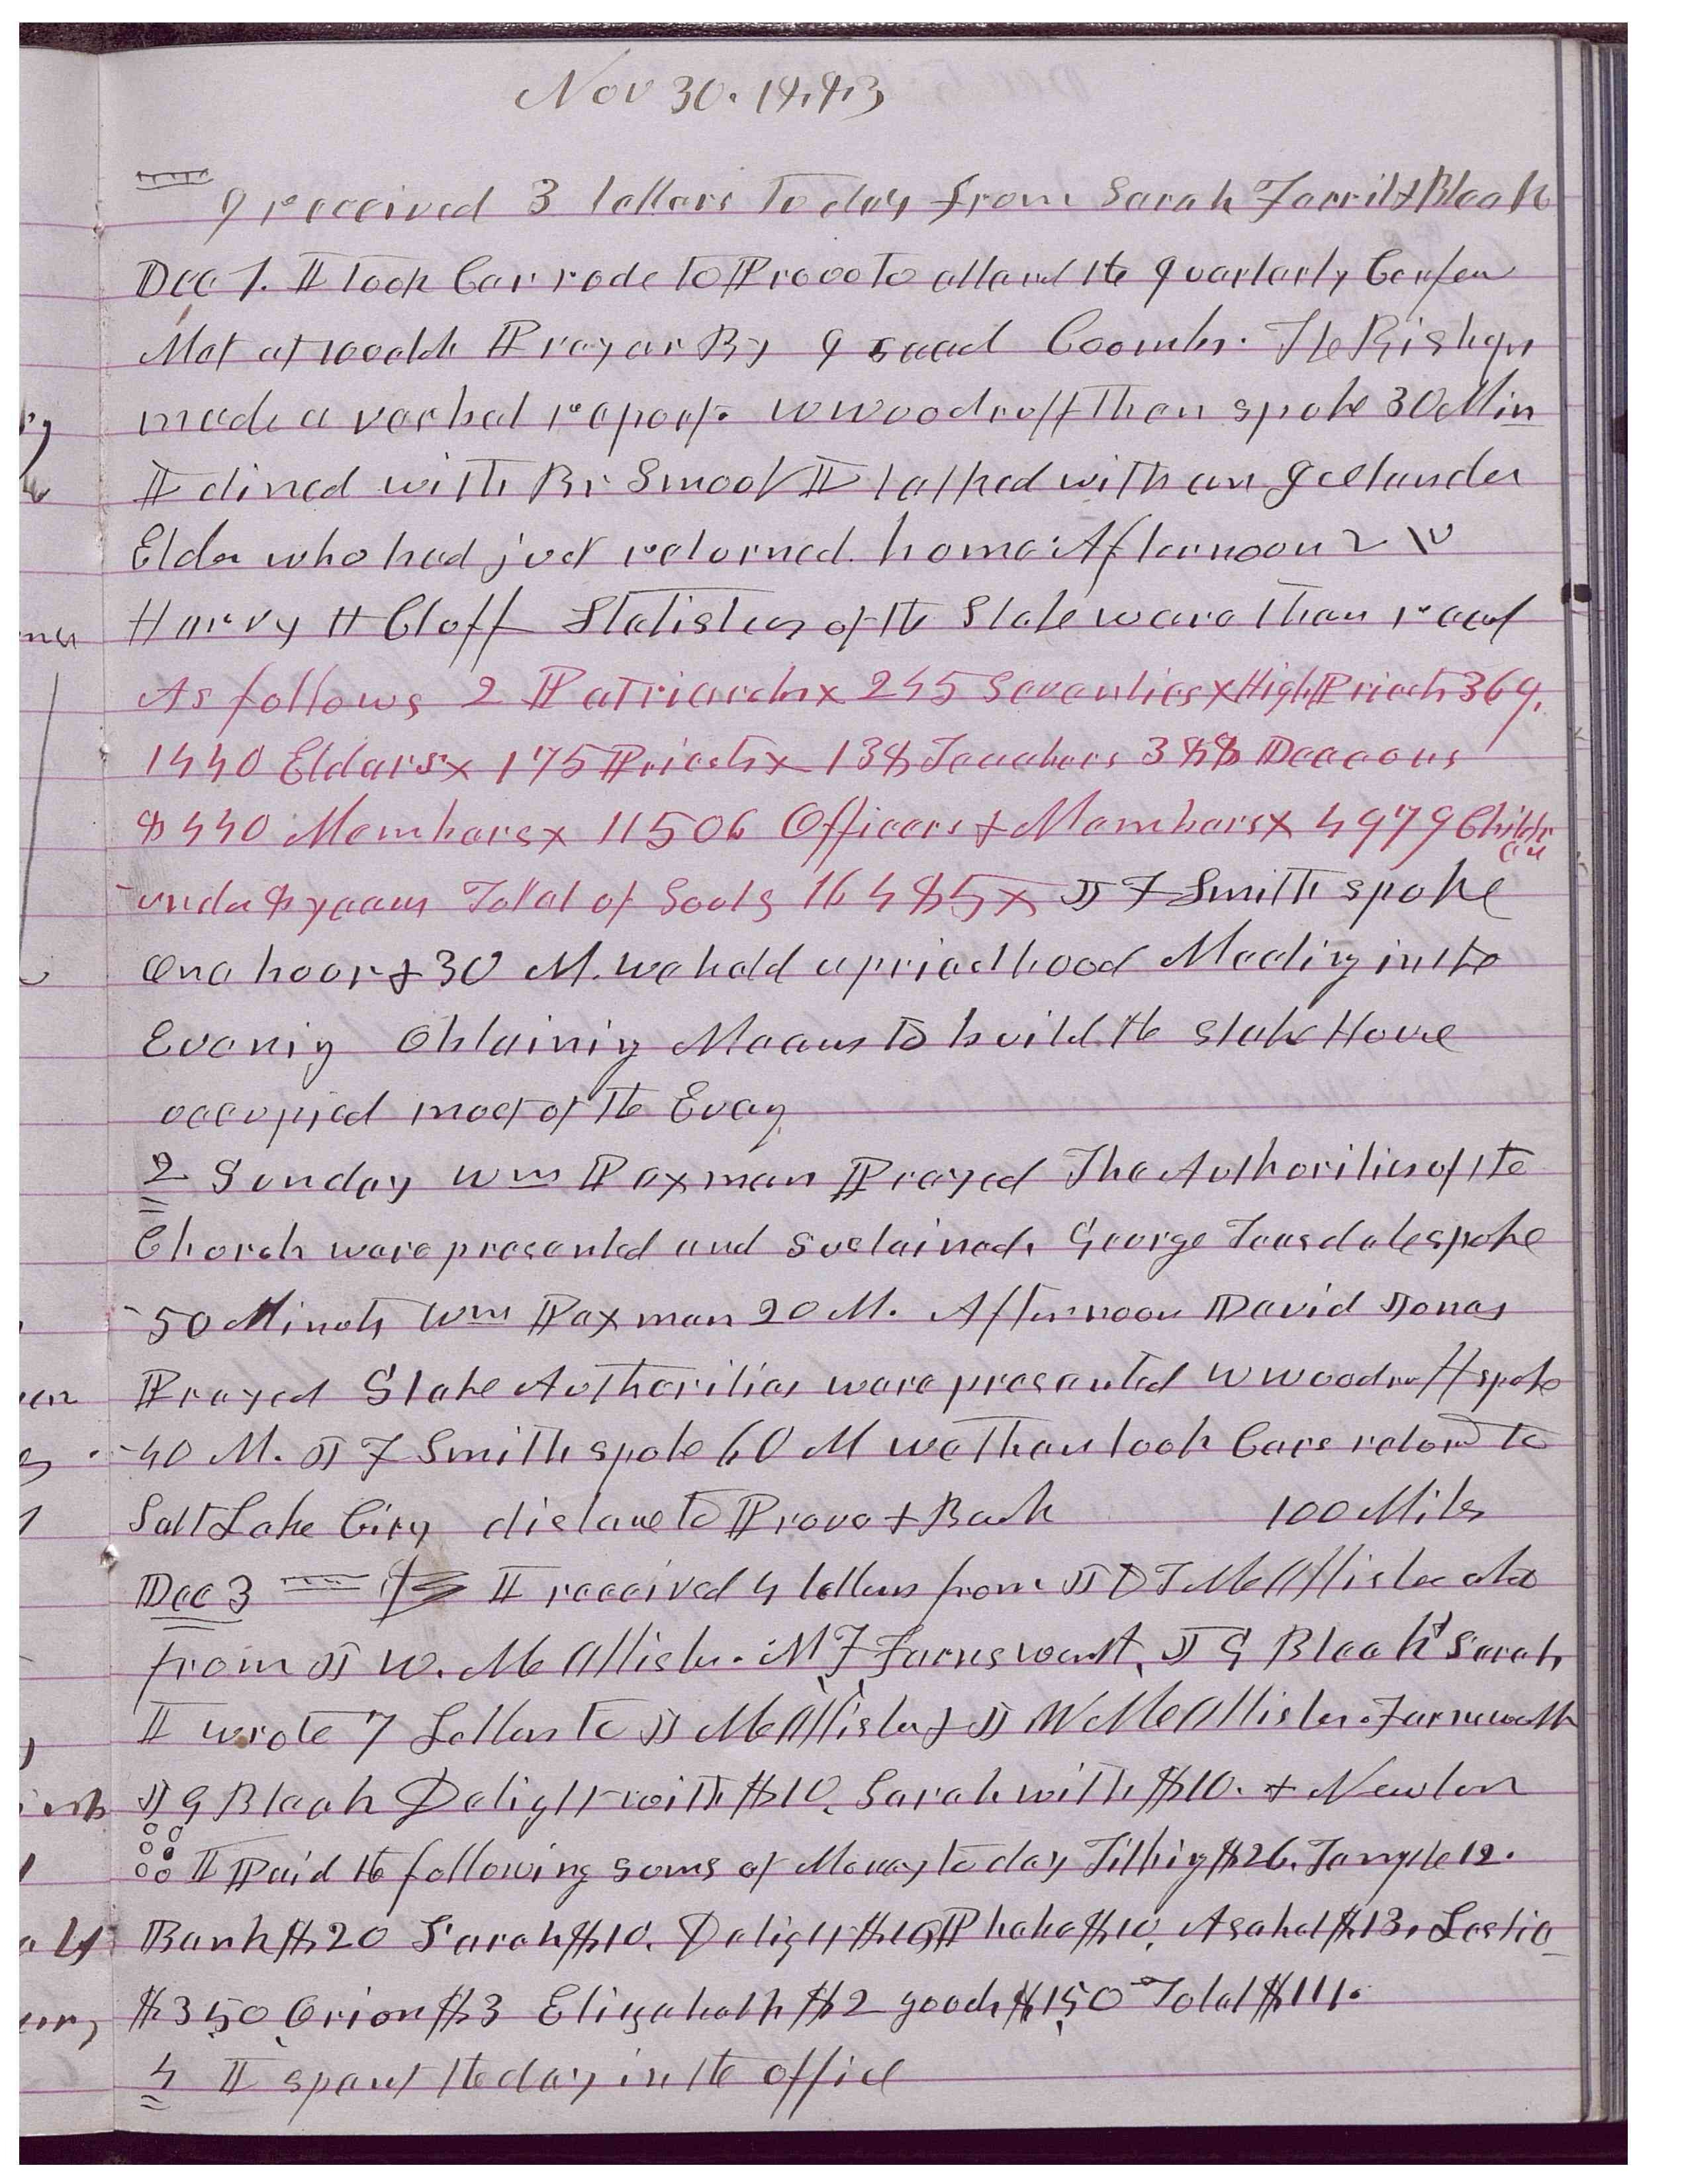 Nov 30. 1883
I received 3 letters to day from Sarah Jerril & Bleak
Dec 1. I took Car rode to Provo to attend the Quarterly Confern
Met at 10 oclok Prayer By Isaac Coombs. The Bishops
made a verbal report. W Woodruff then spoke 30 Min
I dined with Br Smoot I talked with an Icelander
Elder who had just returned home. Afternoon 2
Harvy H Cluff Statistics of the Stake were then read
As follows 2 Patriarchs x 245 Seventies x High Priests 369.
1440 Elders x 175 Priests x 138 Teachers 388 Deacons
8440 Members x 11506 Officers & Members x 4979 Children
under 8 years Total of Souls 16485 x J F Smith spoke
one hour & 30 M. we held a priesthood Meeting in the
Evening Obtaining Means to build the Stake House
occupied most of the Eveng
2 Sunday Wm Paxman Prayed The Authorities of the
Church were presented and Sustained. George Teasdale spoke
50 Minuts Wm Paxman 20 M. Afternoon David Jones
Prayed Stake Authorities were presented W Woodruff spoke
40 M. J F Smith spoke 60 M we then took Cars returnd to
Salt Lake City distance to Provo & Back 100 Miles
Dec 3 I received 4 letters from J D T McAllister also
from J W. McAllister. M F Farnsworth, J G Bleak & Sarah
I wrote 7 Letters to J McAllister & J W McAllister. Farnsworth
J G Bleak Delight with $10, Sarah with $10. & Newton
I Paid the following sums of Money to day Tithing $26. Temple 12.
Bank $20 Sarah $10. Delight $10 Phebe $10, Asahel $13. Leslie
$3.50 Orion $3 Elizabeth $2 goods $1.50 Total $111.
4 I spent the day in the office